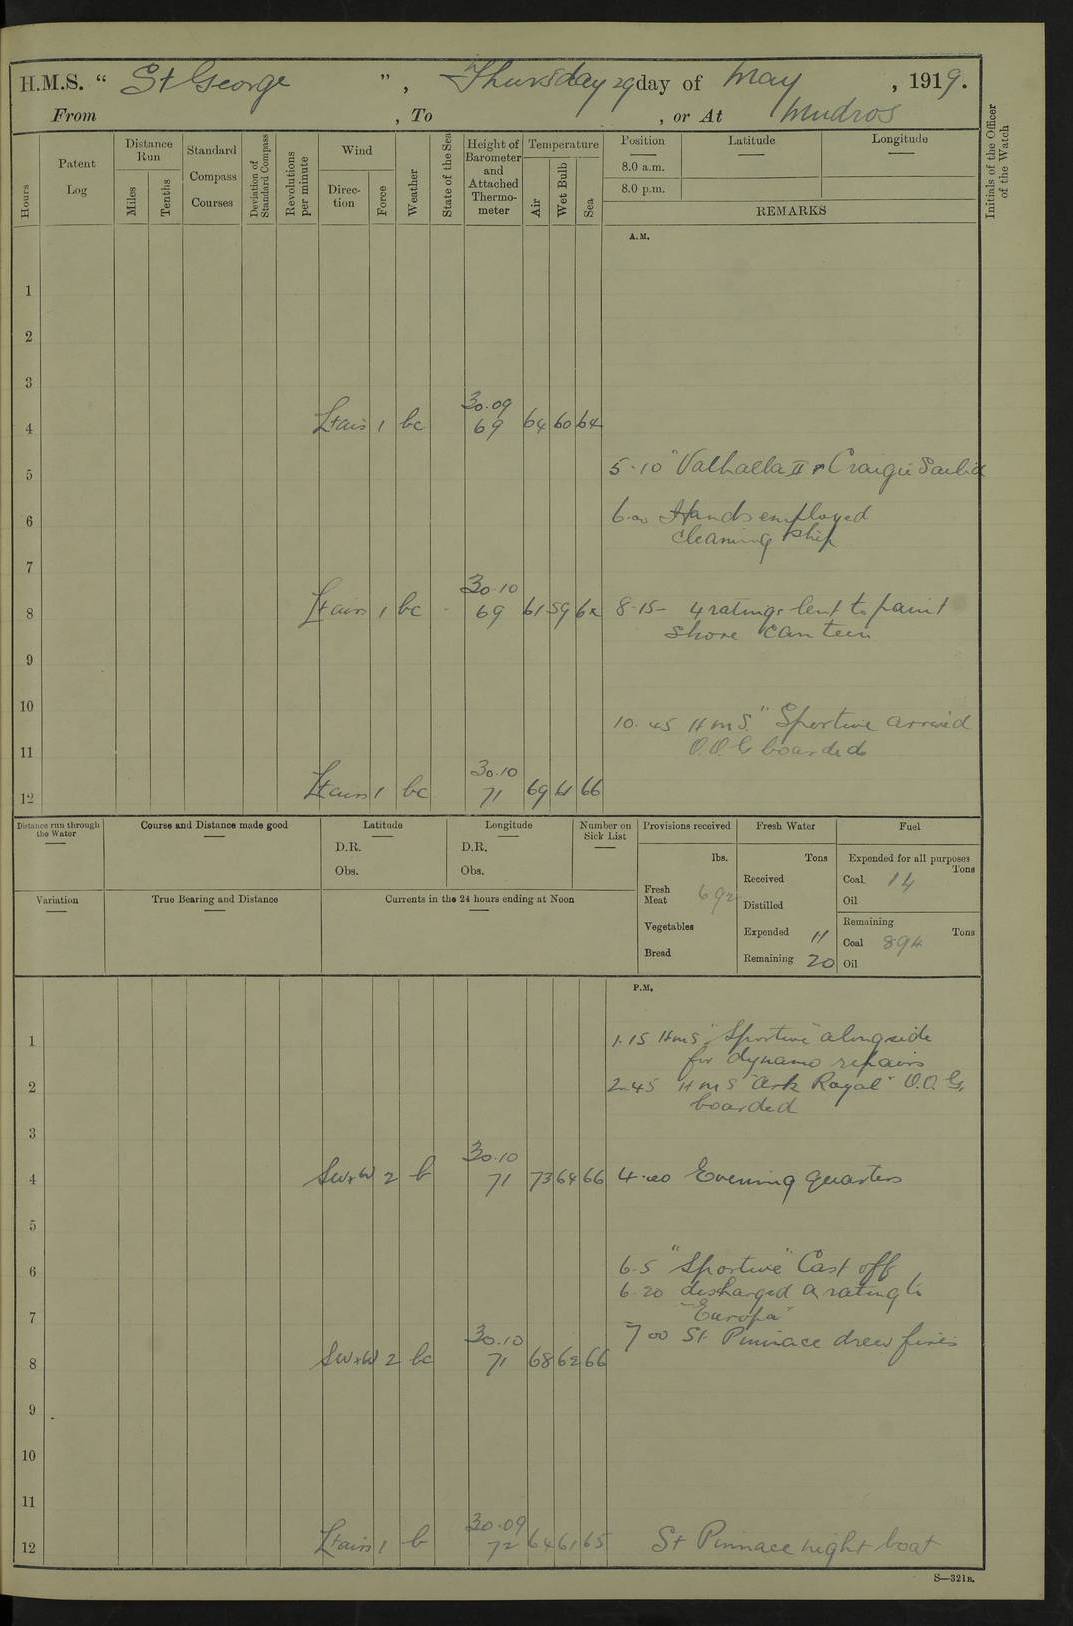 H.M.S. “ St George ”, Thursday 29 day of May , 1919.
From , To , or At Mudros
Hours
Patent Log
Distance Run
Miles
Tenths
Standard Compass Courses
Deviation of Standard Compass
Revolutions per minute
Wind
Direction
Force
Weather
State of the Sea
Height of Barometer and Attached Thermometer
Temperature
Air
Wet Bulb
Sea
Position
8.0 a.m.
8.0 p.m.
Latitude
Longitude
REMARKS
Initials of the Officer of the Watch
A.M.
1
2
3
30.09
4 Lt airs 1 bc 69 64 60 64
5.10 "Valhalla II & Craigie Sailed
5
6.00 Hands employed
6
cleaning ship
7
30.10
8 Lt airs 1 bc - 69 61 59 62 8.15- 4 ratings lent to paint
shore canteen
9
10
10.45 HMS "Sportive arrived
11 O.O.G boarded
30.10
12 Lt airs 1 bc 71 69 61 66
Distance run through the Water
Course and Distance made good
Latitude
D.R.
Obs.
Longitude
D.R.
Obs.
Number on Sick List
Provisions received
lbs.
Fresh Meat 692
Vegetables
Bread
Fresh Water
Tons
Received
Distilled
Expended 11
Remaining 20
Fuel
Expended for all purposes
Tons
Coal 14
Oil
Remaining
Coal 894 Tons
Oil
Variation
True Bearing and Distance
Currents in the 24 hours ending at Noon
P.M.
1 1.15 HMS "Sportive" alongside
for dynamo repairs
2 2.45 HMS "Ark Royal" O.O.G.
boarded
3
30.10
4 SWxW 2 b 71 73 64 66 4.00 Evening quarters
5
6 6.5 "Sportive" Cast off
6.20 discharged a rating to
7 "Europa"
30.10 7 00 St Pinnace drew fires
8 SWxW 2 bc 71 68 62 66
9
10
11
30.09
12 Lt airs 1 b 72 64 61 65 St Pinnace night boat
S—321B.